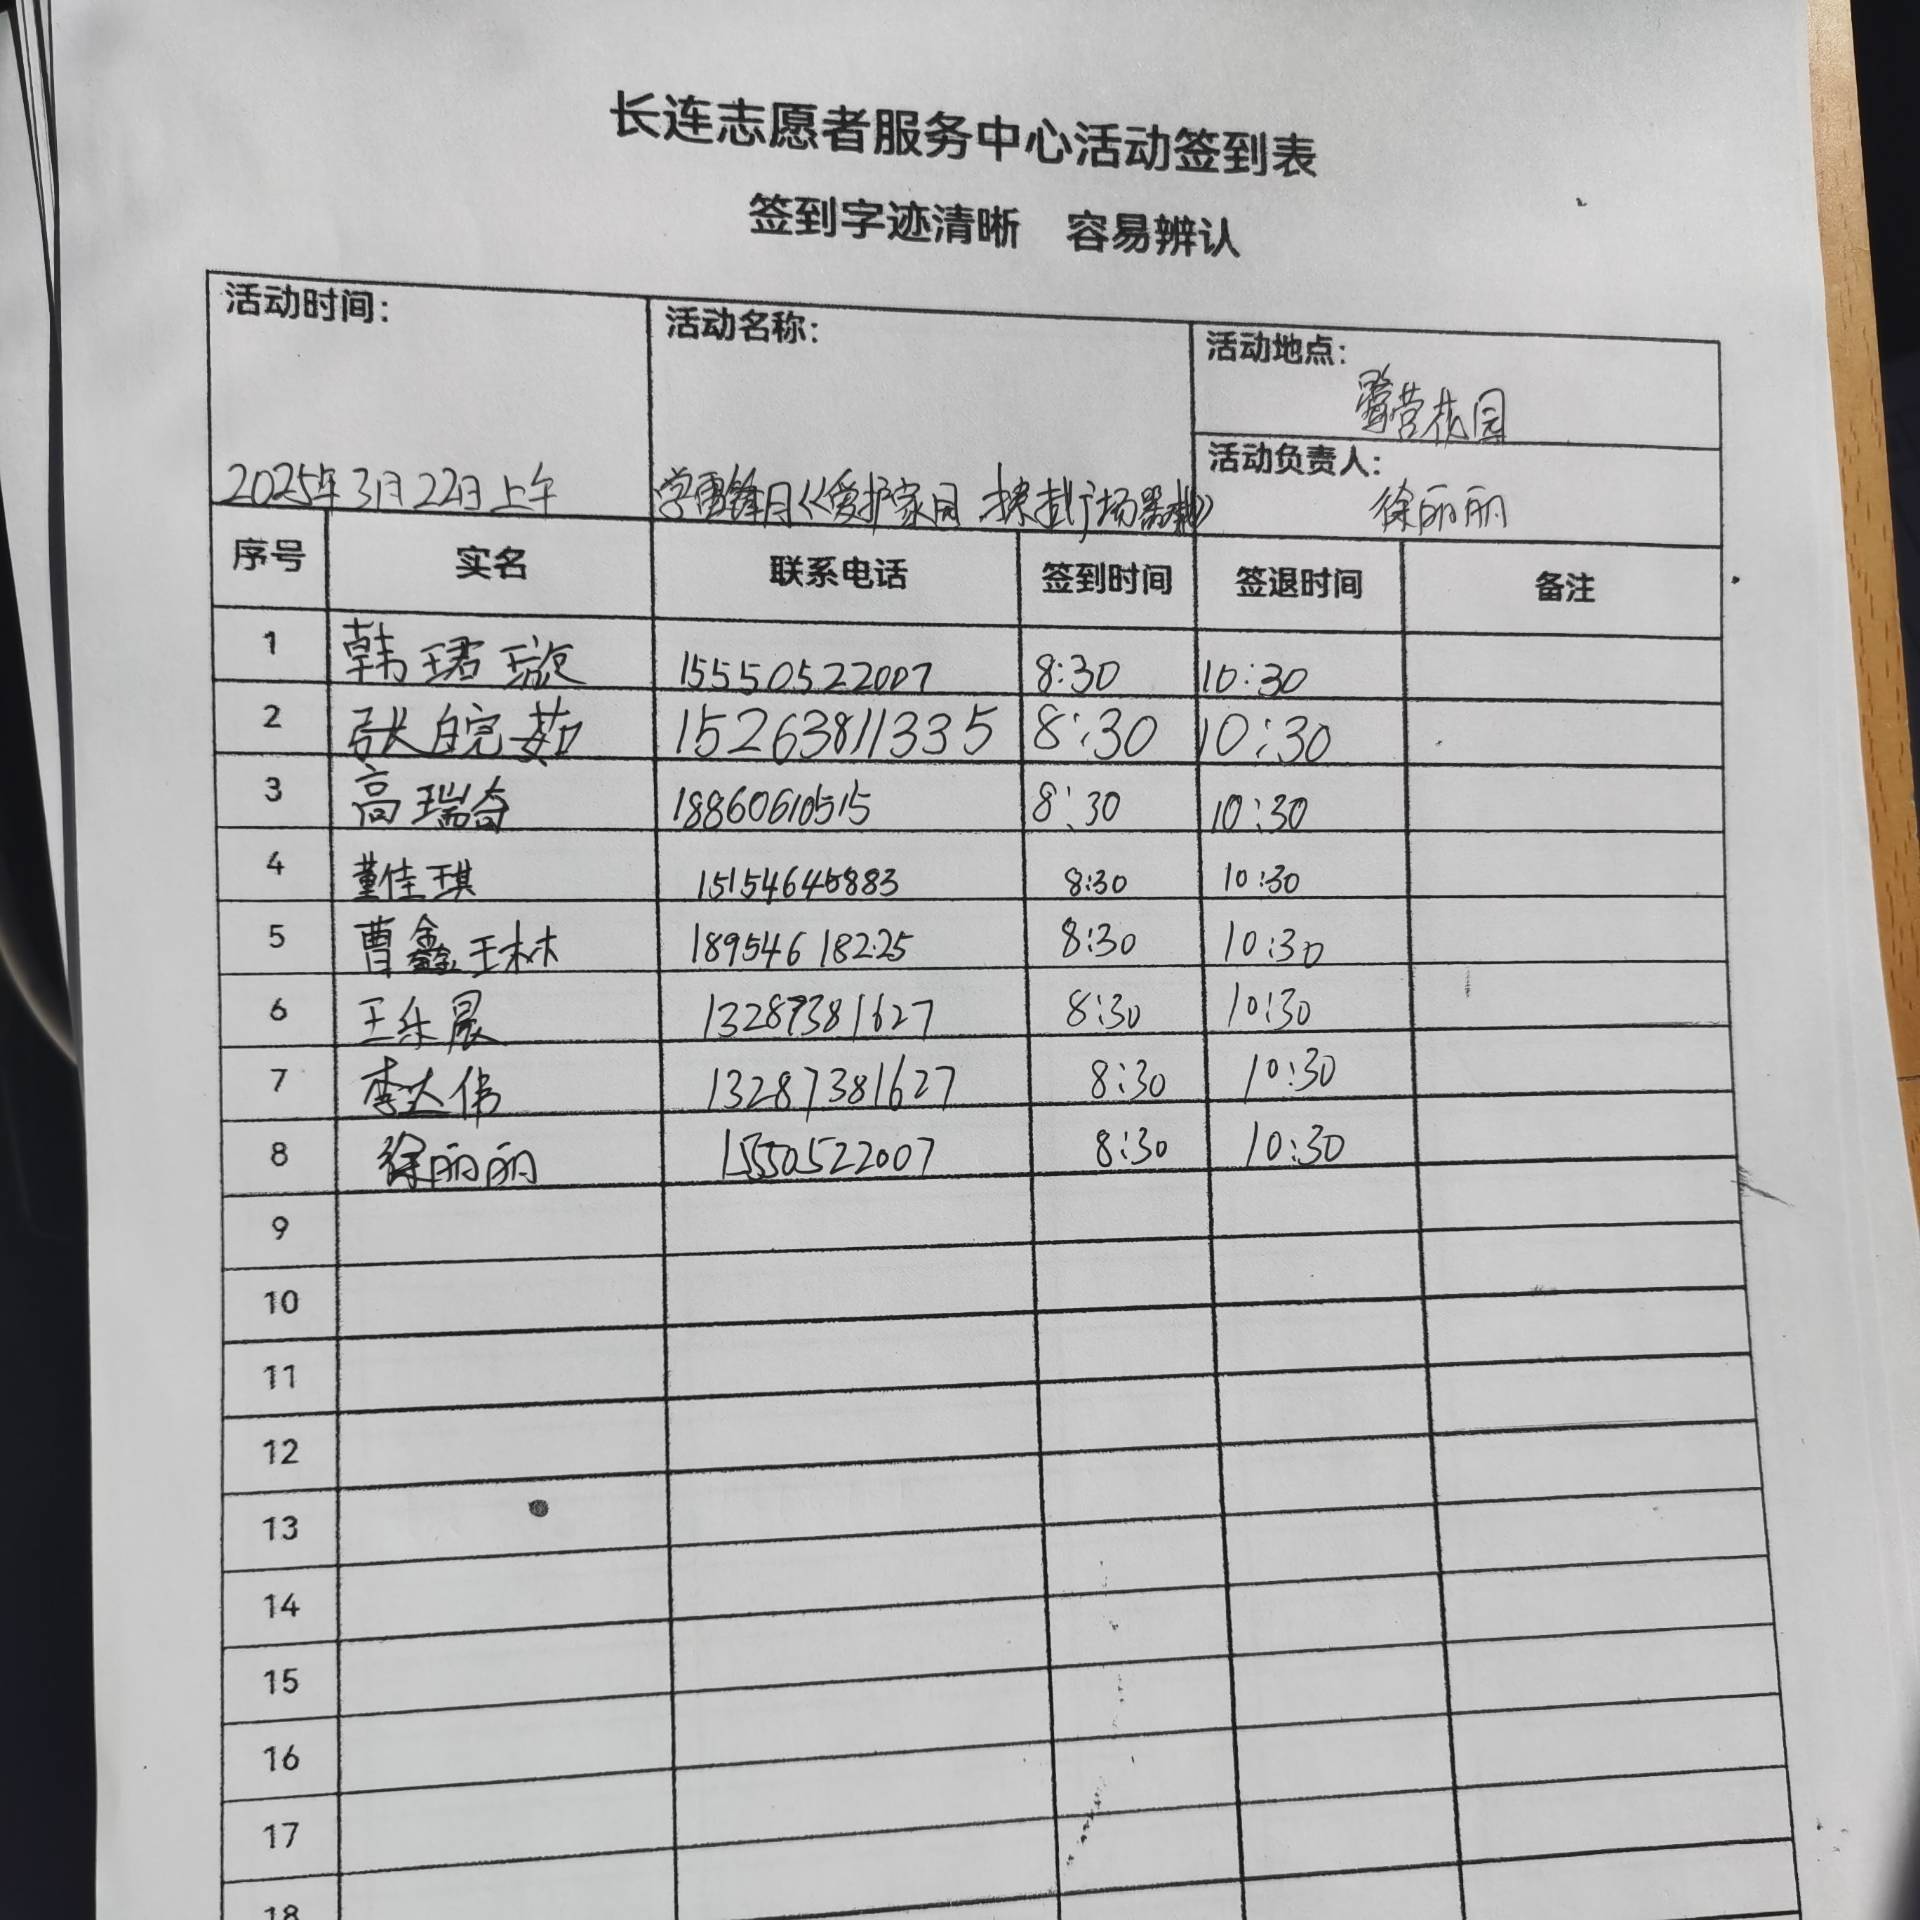 长连志愿者服务中心活动签到表
签到字迹清晰 容易辨认
活动时间: 2025年3月22日上午
活动名称: 学雷锋月《爱护家园 擦拭广场器械》
活动地点: 露营花园
活动负责人: 徐丽丽
序号 实名 联系电话 签到时间 签退时间 备注
1 韩珺璇 15550522007 8:30 10:30
2 张皖茹 15263811335 8:30 10:30
3 高瑞奇 18860610515 8:30 10:30
4 董佳琪 15154645883 8:30 10:30
5 曹鑫琳 18954618225 8:30 10:30
6 王乐晨 13287381627 8:30 10:30
7 李大伟 13287381627 8:30 10:30
8 徐丽丽 15550522007 8:30 10:30
9
10
11
12
13
14
15
16
17
18